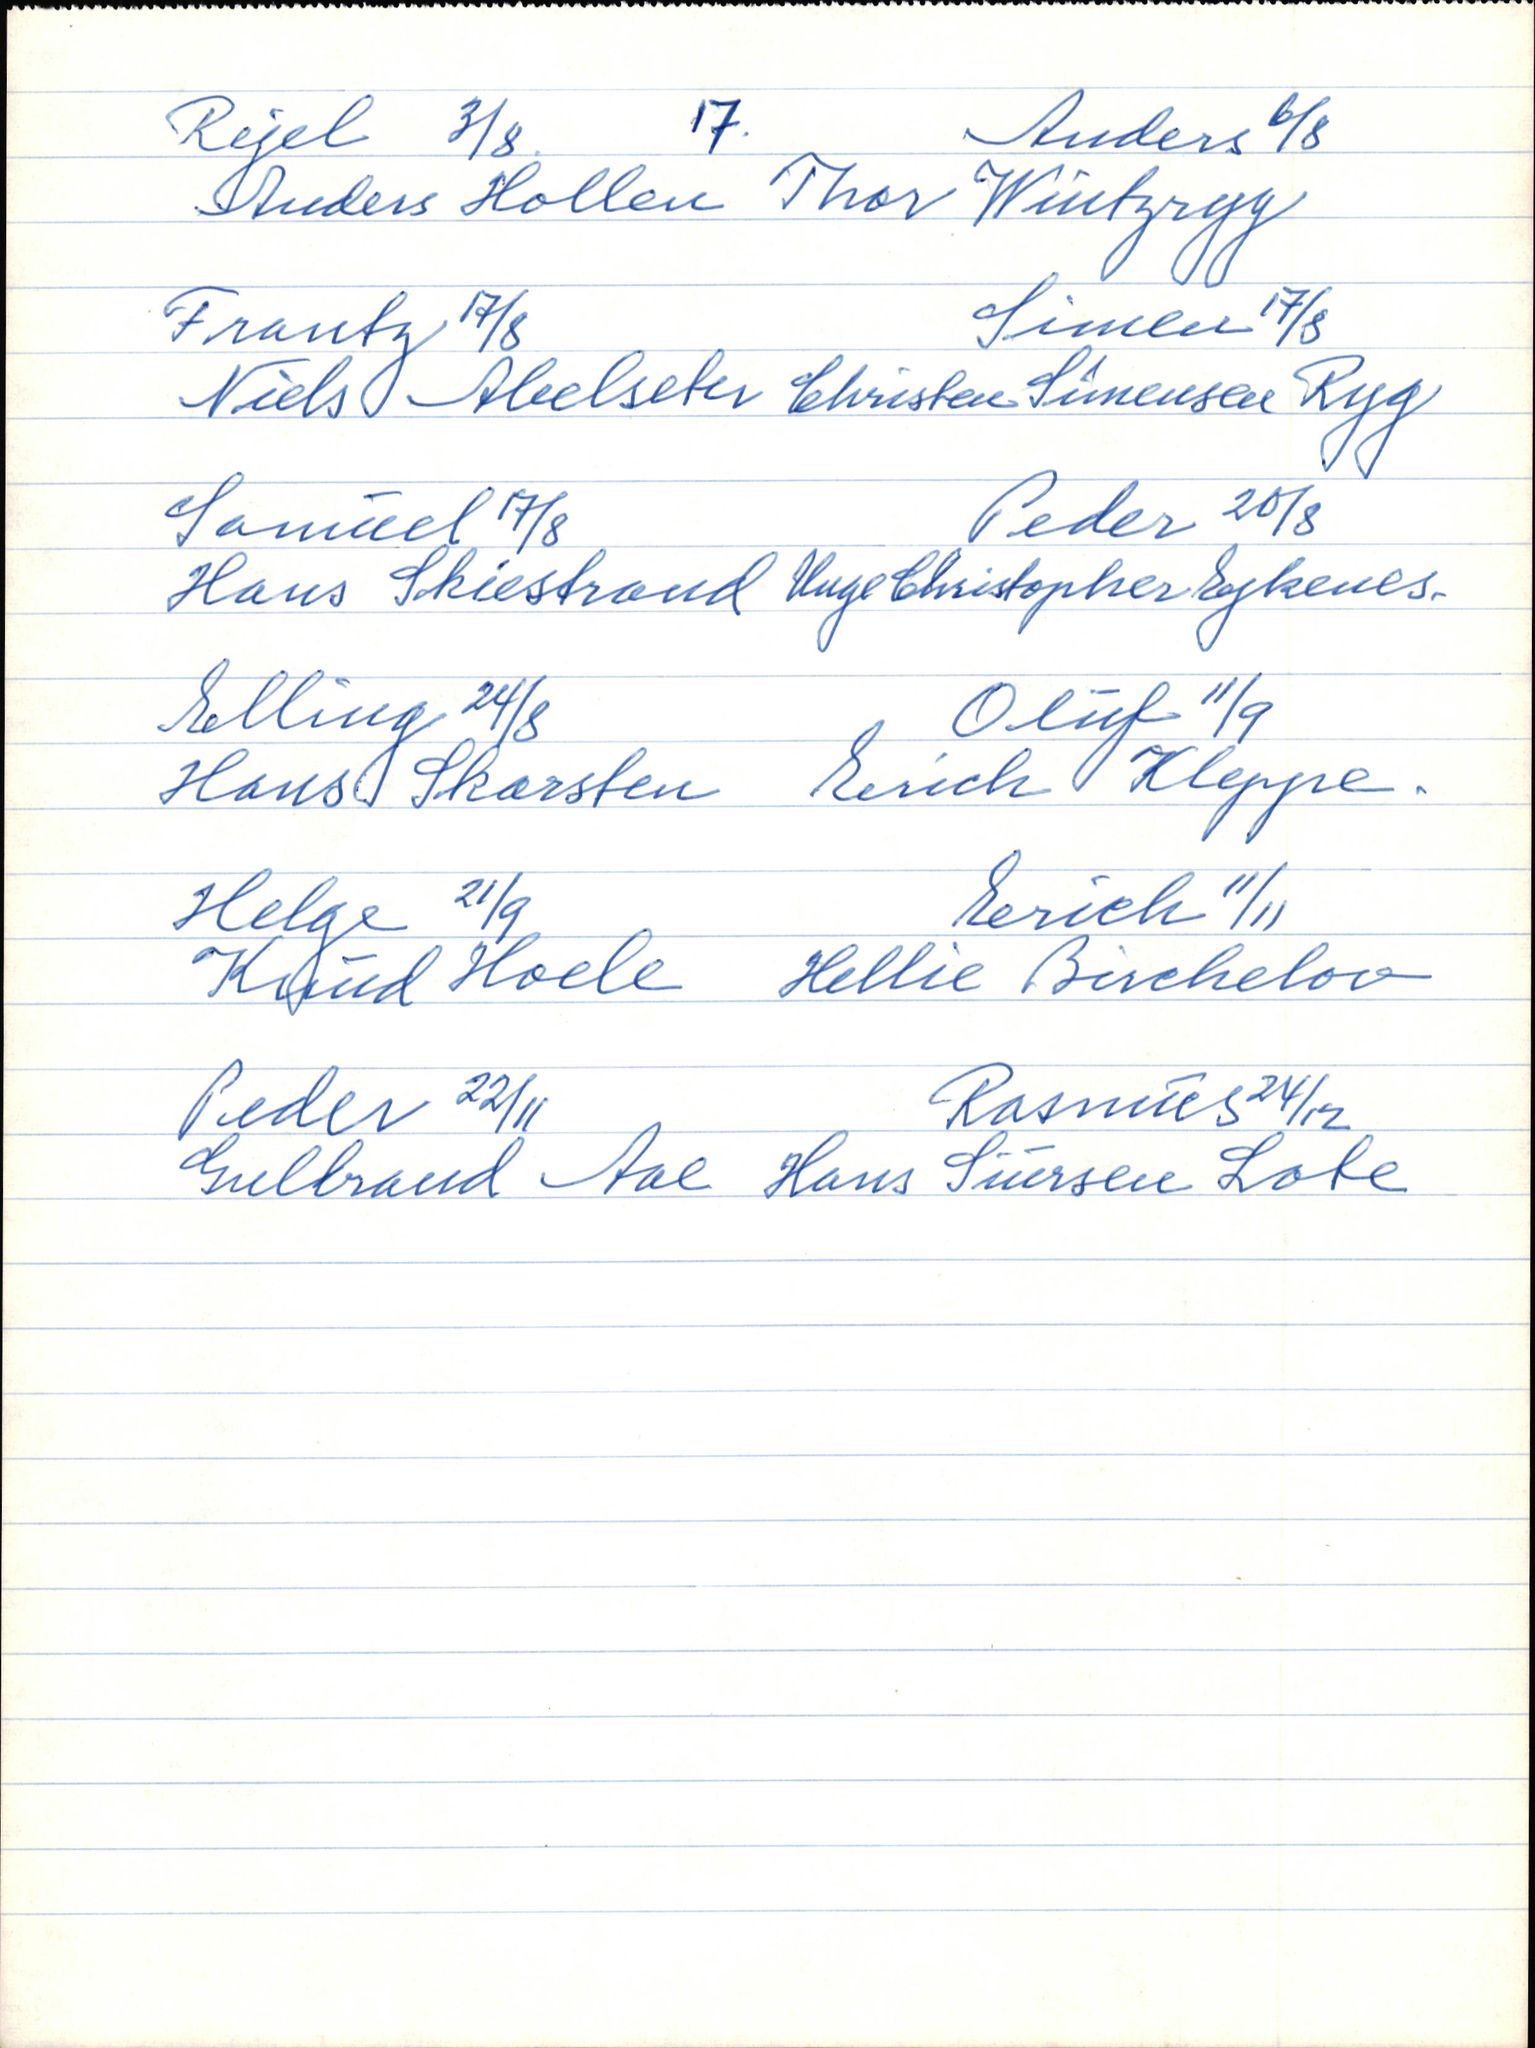 Rejel 3/8. 17. Anders 6/8
Anders Hollen Thor Wintzryg
Frantz 17/8 Simen 17/8
Niels Abelseter Christen Simensen Ryg
Samüel 17/8 Peder 20/8
Hans Skiestrand Unge Christopher Eykenes.
Elling 24/8 Olüf 11/9
Hans Skarsten Erich Kleppe.
Helge 21/9 Erich 11/11
Knüd Hoele Hellie Birchelov
Peder 22/11 Rasmüs 24/12
Gulbrand Aae Hans Siürsen Lote